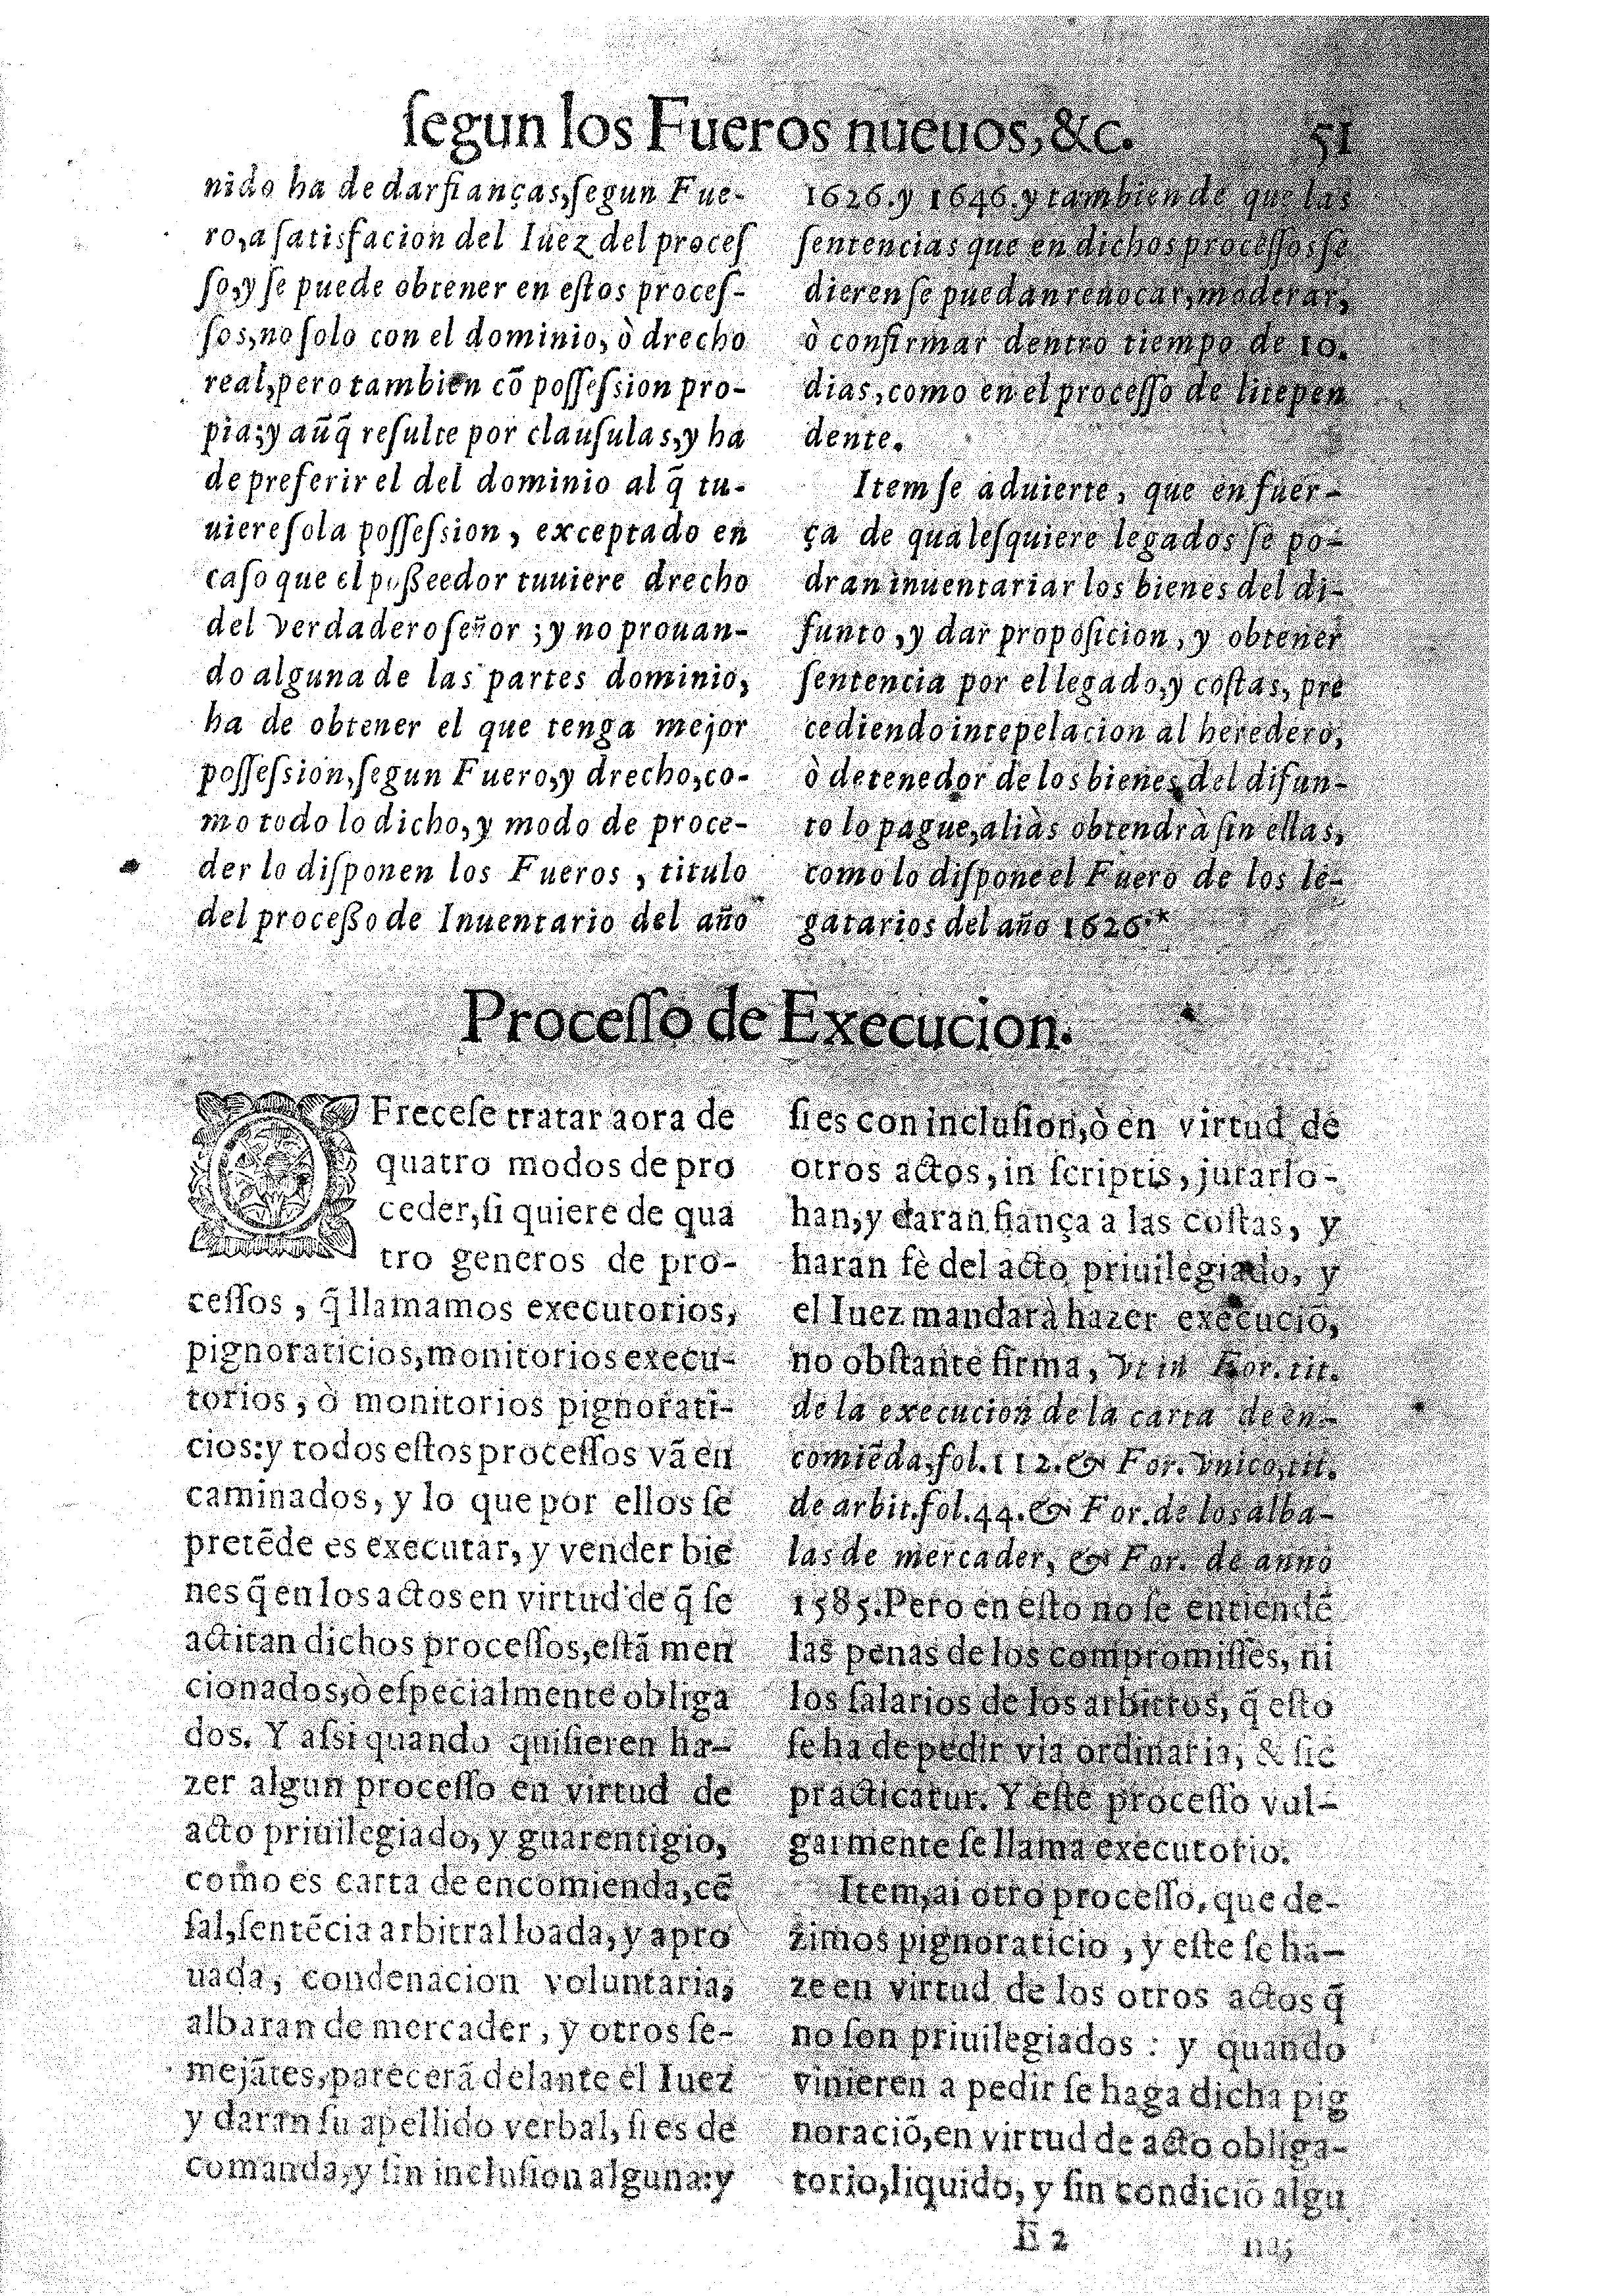 ſegun los Fueros nueuos,&c. 51
nido ha de dar fianças,ſegun Fue-
ro,a ſatisfacion del Iuez del proceſ
ſo,y ſe puede obtener en eſtos proceſ-
ſos,no ſolo con el dominio, ò drecho
real,pero tambien cõ poſſeſsion pro-
pia;y aũq̃ reſulte por clauſulas,y ha
de preferir el del dominio al q̃ tu-
uiere ſola poſſeſsion, exceptado en
caſo que el poßeedor tuuiere drecho
del verdadero ſeñor ;y no prouan-
do alguna de las partes dominio,
ha de obtener el que tenga mejor
poſſeſsion,ſegun Fuero,y drecho,co-
mo todo lo dicho,y modo de proce-
der lo diſponen los Fueros , titulo
del proceßo de Inuentario del año
1626.y 1646.y tambien de que las
ſentencias que en dichos proceſſos ſe
dieren ſe puedan reuocar,moderar,
ò confirmar dentro tiempo de 10.
dias,como en el proceſſo de litepen
dente.
Item ſe aduierte, que en fuer-
ça de qualeſquiere legados ſe po-
dran inuentariar los bienes del di-
funto ,y dar propoſicion ,y obtener
ſentencia por el legado,y coſtas, pre
cediendo intepelacion al heredero,
ò detenedor de los bienes del difun-
to lo pague,aliàs obtendrà ſin ellas,
como lo diſpone el Fuero de los le-
gatarios del año 1626.*
Proceſſo de Execucion.
OFreceſe tratar aora de
quatro modos de pro
ceder,ſi quiere de qua
tro generos de pro-
ceſſos , q̃ llamamos executorios,
pignoraticios,monitorios execu-
torios , ò monitorios pignorati-
cios:y todos eſtos proceſſos vã en
caminados, y lo que por ellos ſe
pretẽde es executar, y vender bie
nes q̃ en los actos en virtud de q̃ ſe
actitan dichos proceſſos,eſtã men
cionados,ò eſpecialmente obliga
dos. Y aſsi quando quiſieren ha-
zer algun proceſſo en virtud de
acto priuilegiado, y guarentigio,
como es carta de encomienda,cẽ
ſal,ſentẽcia arbitral loada, y apro
uada, condenacion voluntaria,
albaran de mercader , y otros ſe-
mejãtes,parecerã delante el Iuez
y daran ſu apellido verbal, ſi es de
comanda,y ſin incluſion alguna:y
ſi es con incluſion,ò en virtud de
otros actos, in ſcriptis, jurarlo-
han,y daran fiança a las coſtas, y
haran fè del acto priuilegiado, y
el Iuez mandarà hazer execuciõ,
no obſtante firma, vt in For. tit.
de la execucion de la carta de en-
comiẽda,fol.112.& For. vnico,tit.
de arbit.fol.44.& For.de los alba-
las de mercader, & For. de anno
1585.Pero en eſto no ſe entiendẽ
las penas de los compromiſſes, ni
los ſalarios de los arbitros, q̃ eſto
ſe ha de pedir via ordinaria, & ſic
practicatur. Y eſte proceſſo vul-
garmente ſe llama executorio.
Item,ai otro proceſſo, que de-
zimos pignoraticio , y eſte ſe ha-
ze en virtud de los otros actos q̃
no ſon priuilegiados : y quando
vinieren a pedir ſe haga dicha pig
noraciõ,en virtud de acto obliga-
torio,liquido, y ſin condiciõ algu
E 2 na;